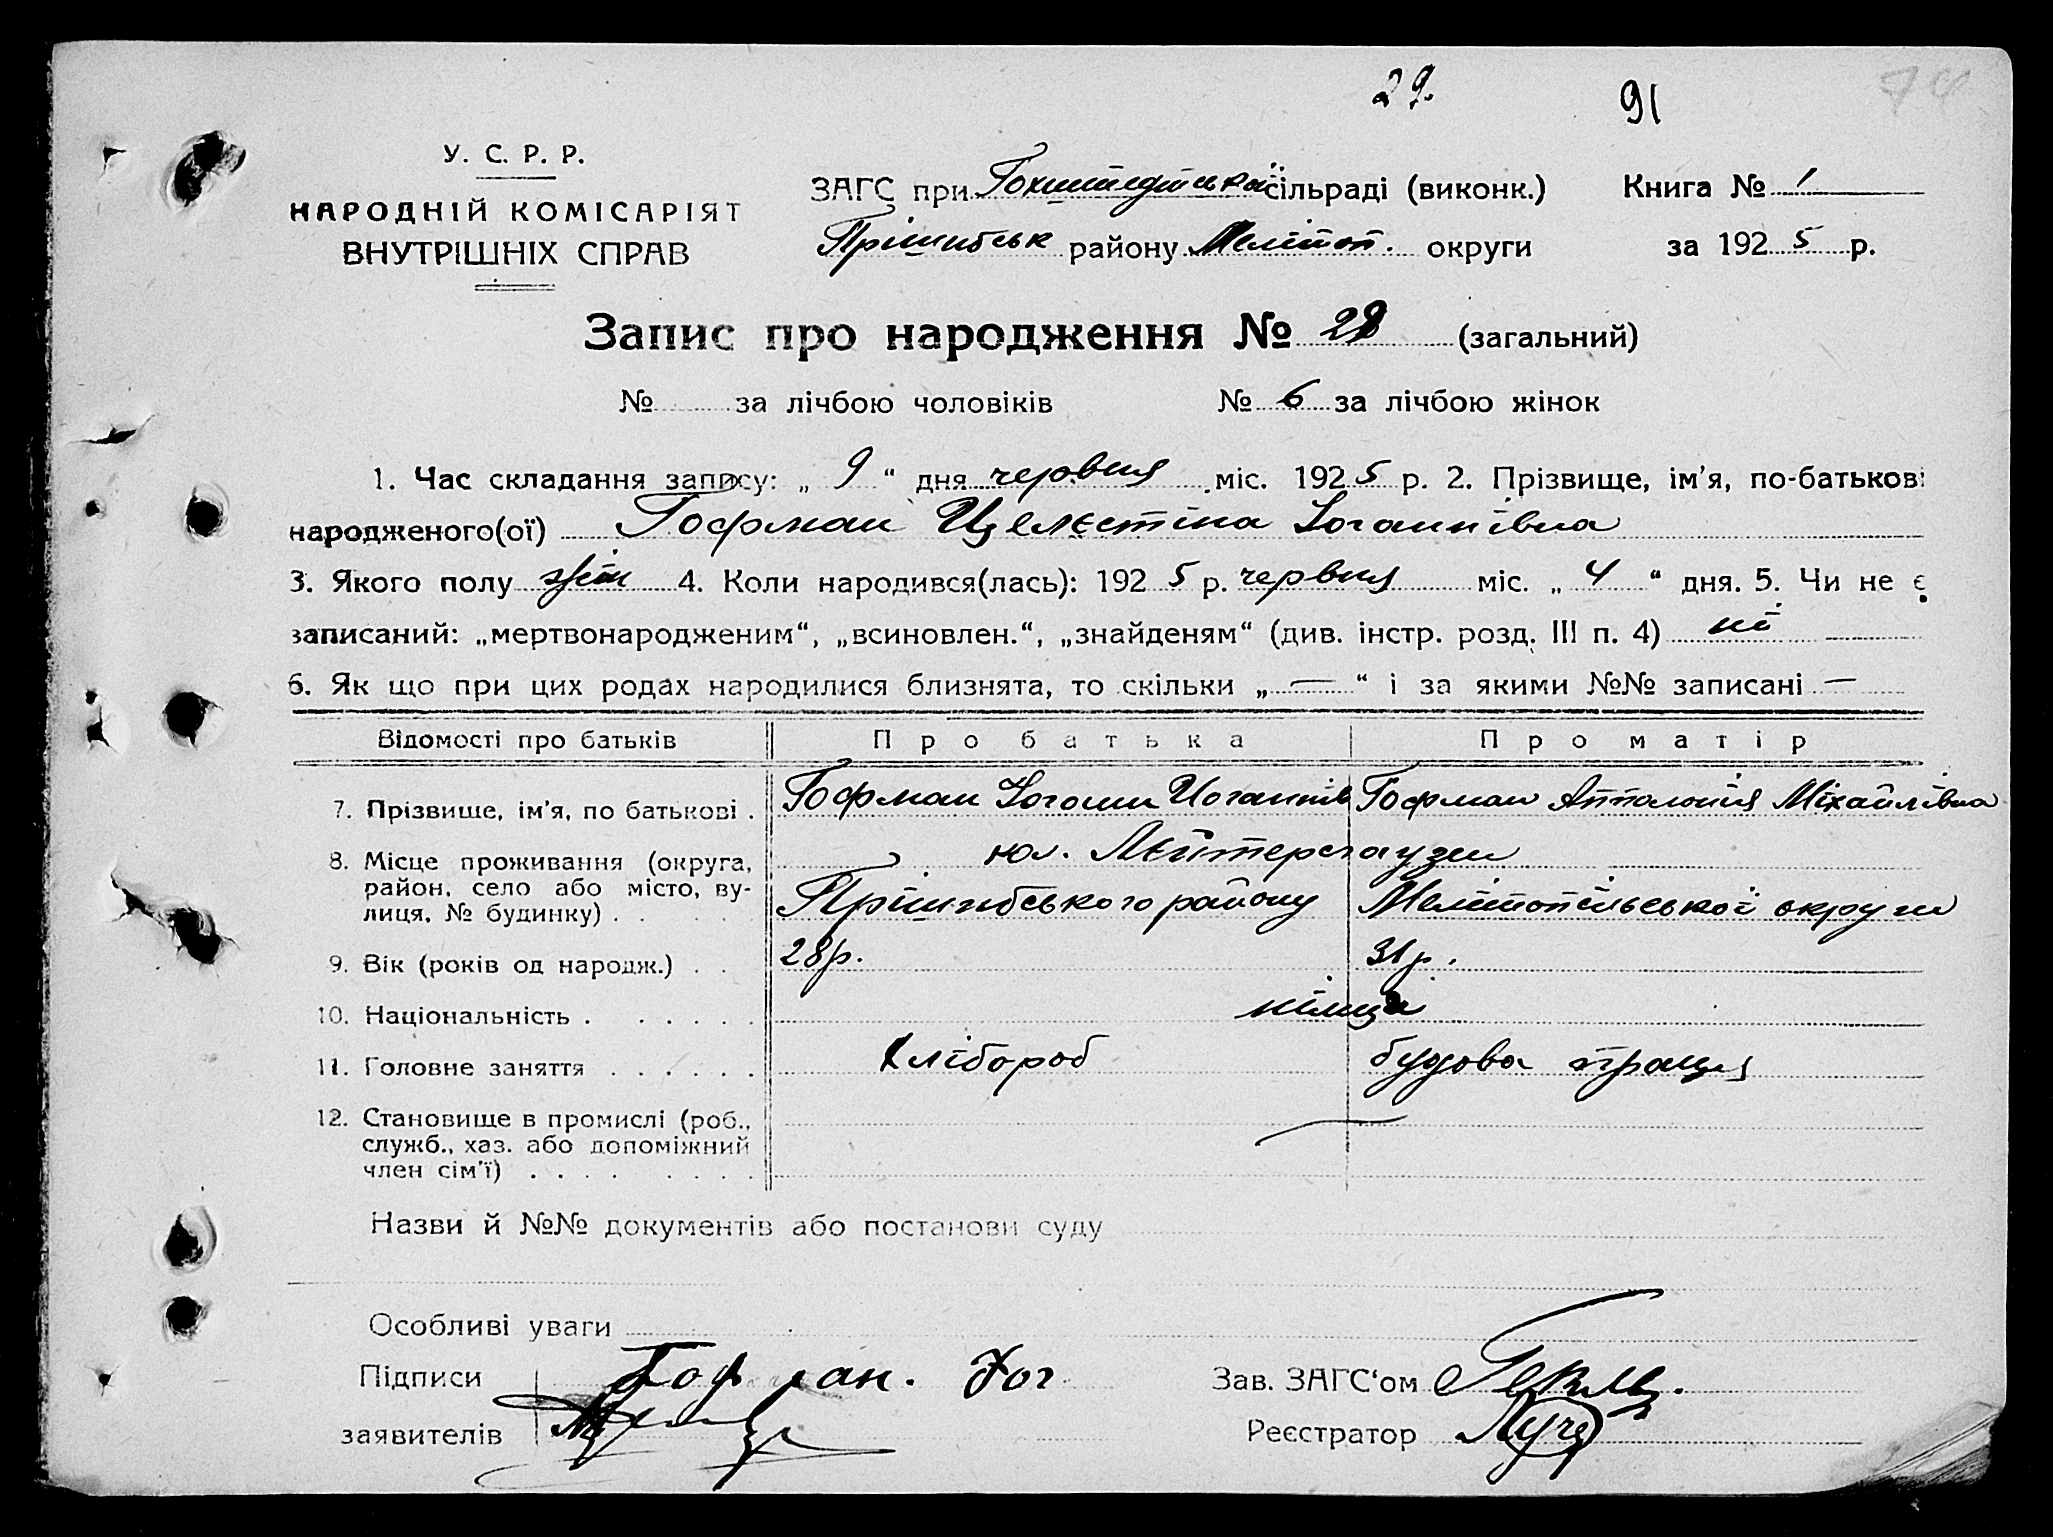 29. 91 74
У. С. Р. Р.
НАРОДНІЙ КОМІСАРІЯТ
ВНУТРІШНІХ СПРАВ
ЗАГС при Гохштедтській сільраді (виконк.) Книга № 1
Прішибськ району Меліт оп. округи за 1925 р.
Запис про народження № 28 (загальний)
№ за лічбою чоловіків № 6 за лічбою жінок
1. Час складання запису: „ 9 “ дня червня міс. 1925 р. 2. Прізвище, ім'я, по-батькові
народженого(ої) Гофман Целєстіна Іоганнівна
3. Якого полу жін 4. Коли народився(лась): 1925 р. червня міс. „ 4 “ дня. 5. Чи не є
записаний: „мертвонародженим“, „всиновлен.“, „знайденям“ (див. інстр. розд. III п. 4) ні
6. Як що при цих родах народилися близнята, то скільки „ — “ і за якими №№ записані —
Відомості про батьків Про батька Про матір
7. Прізвище, ім'я, по батькові . Гофман Іоганн Иоганнів Гофман Апполонія Міхайлівна
8. Місце проживання (округа, район, село або місто, вулиця, № будинку) . . кол. Лейтерсгаузен
Прішибського району Мелітопільської округи
9. Вік (років од народж.) . . 28р. 31р.
10. Національність . . . . . . німці
11. Головне заняття . . . . . . Хлібороб будова праця
12. Становище в промислі (роб.,
служб., хаз. або допоміжний
член сім'ї) . . . . . . . . —
Назви й №№ документів або постанови суду
Особливі уваги
Підписи Гофман. Іог Зав. ЗАГС'ом
заявителів Реєстратор